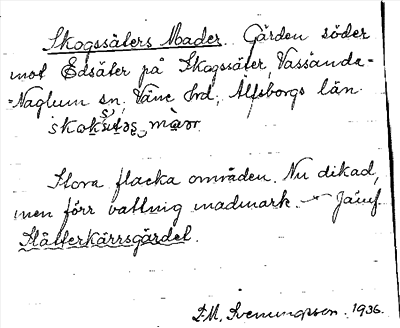 Skogssäters Mader. Gärden söder
mot Edsäter på Skogssäter, Vassända-
-Naglum sn, Väne hrd, Älfsborgs län.
Stora flacka områden. Nu dikad,
men förr vattnig madmark. — Jämf.
Slätterkärrsgärdet.
1936.